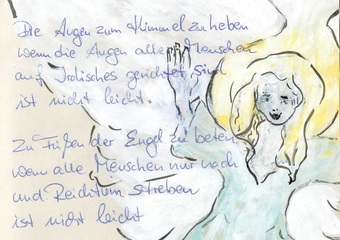 Die Augen zum Himmel zu heben
wenn die Augen aller Menschen
auf Irdisches gerichtet sind
ist nicht leicht.
Zu Füßen der Engel zu beten
wenn alle Menschen nur nach
und Reichtum streben
ist nicht leicht